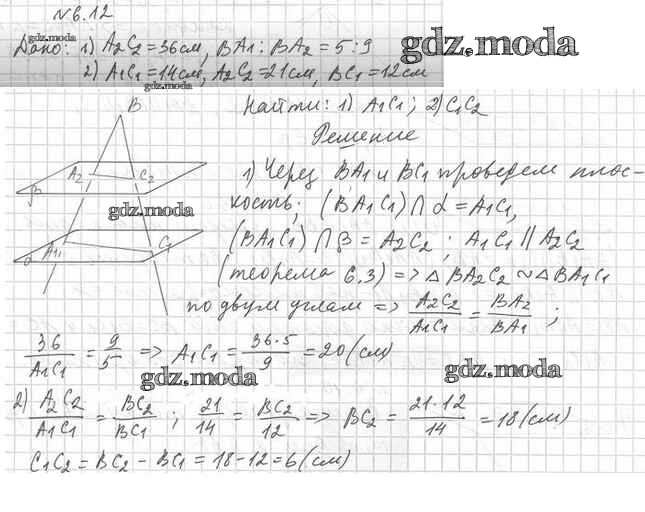 №6.12
Дано: 1) A₂C₂ = 36 см, BA₁ : BA₂ = 5 : 9
gdz.moda
2) A₁C₁ = 14 см, A₂C₂ = 21 см, BC₁ = 12 см
gdz.moda
gdz.moda
Найти: 1) A₁C₁; 2) C₁C₂
Решение
B
A₂ C₂
β
gdz.moda
A₁ C₁
α
1) Через BA₁ и BC₁ проведем плос-
кость; (BA₁C₁) ∩ α = A₁C₁,
(BA₁C₁) ∩ β = A₂C₂; A₁C₁ ∥ A₂C₂
(теорема 6.3) => △BA₂C₂ ~ △BA₁C₁
по двум углам => A₂C₂/A₁C₁ = BA₂/BA₁;
36/A₁C₁ = 9/5 => A₁C₁ = 36·5/9 = 20 (см)
gdz.moda
gdz.moda
2) A₂C₂/A₁C₁ = BC₂/BC₁; 21/14 = BC₂/12 => BC₂ = 21·12/14 = 18 (см)
C₁C₂ = BC₂ - BC₁ = 18 - 12 = 6 (см)